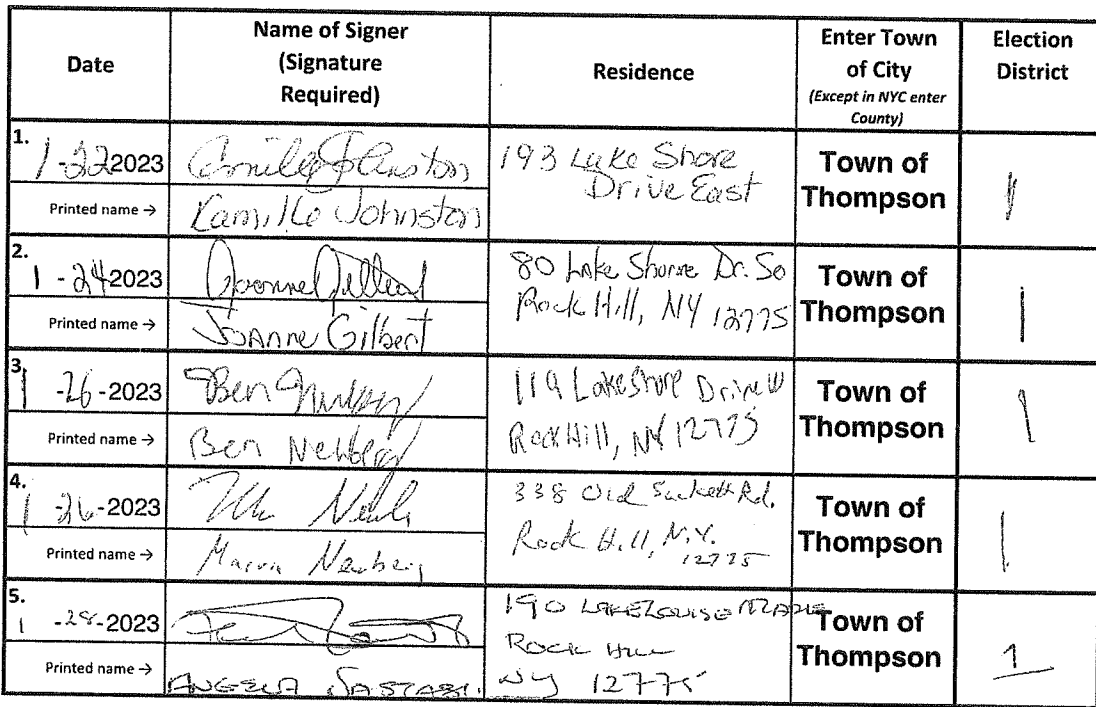 Date
Name of Signer
(Signature
Required)
Residence
Enter Town
of City
(Except in NYC enter
County)
Election
District
1.
1-22 2023
Camille Johnston
193 Lake Shore
Drive East
Town of
Thompson
1
Printed name →
Kamille Johnston
2.
1-24 2023
Joanne Gilbert
80 Lake Shore Dr. So
Rock Hill, NY 12775
Town of
Thompson
1
Printed name →
Joanne Gilbert
3.
1-26-2023
Ben Newberg
119 Lakeshore Drive W
Rock Hill, NY 12775
Town of
Thompson
1
Printed name →
Ben Newberg
4.
1-26-2023
338 Old Sackett Rd.
Rock Hill, N.Y.
12775
Town of
Thompson
1
Printed name →
Newberg
5.
1-28-2023
190 Lake Louise Marie
Rock Hill
NY 12775
Town of
Thompson
1
Printed name →
Angela